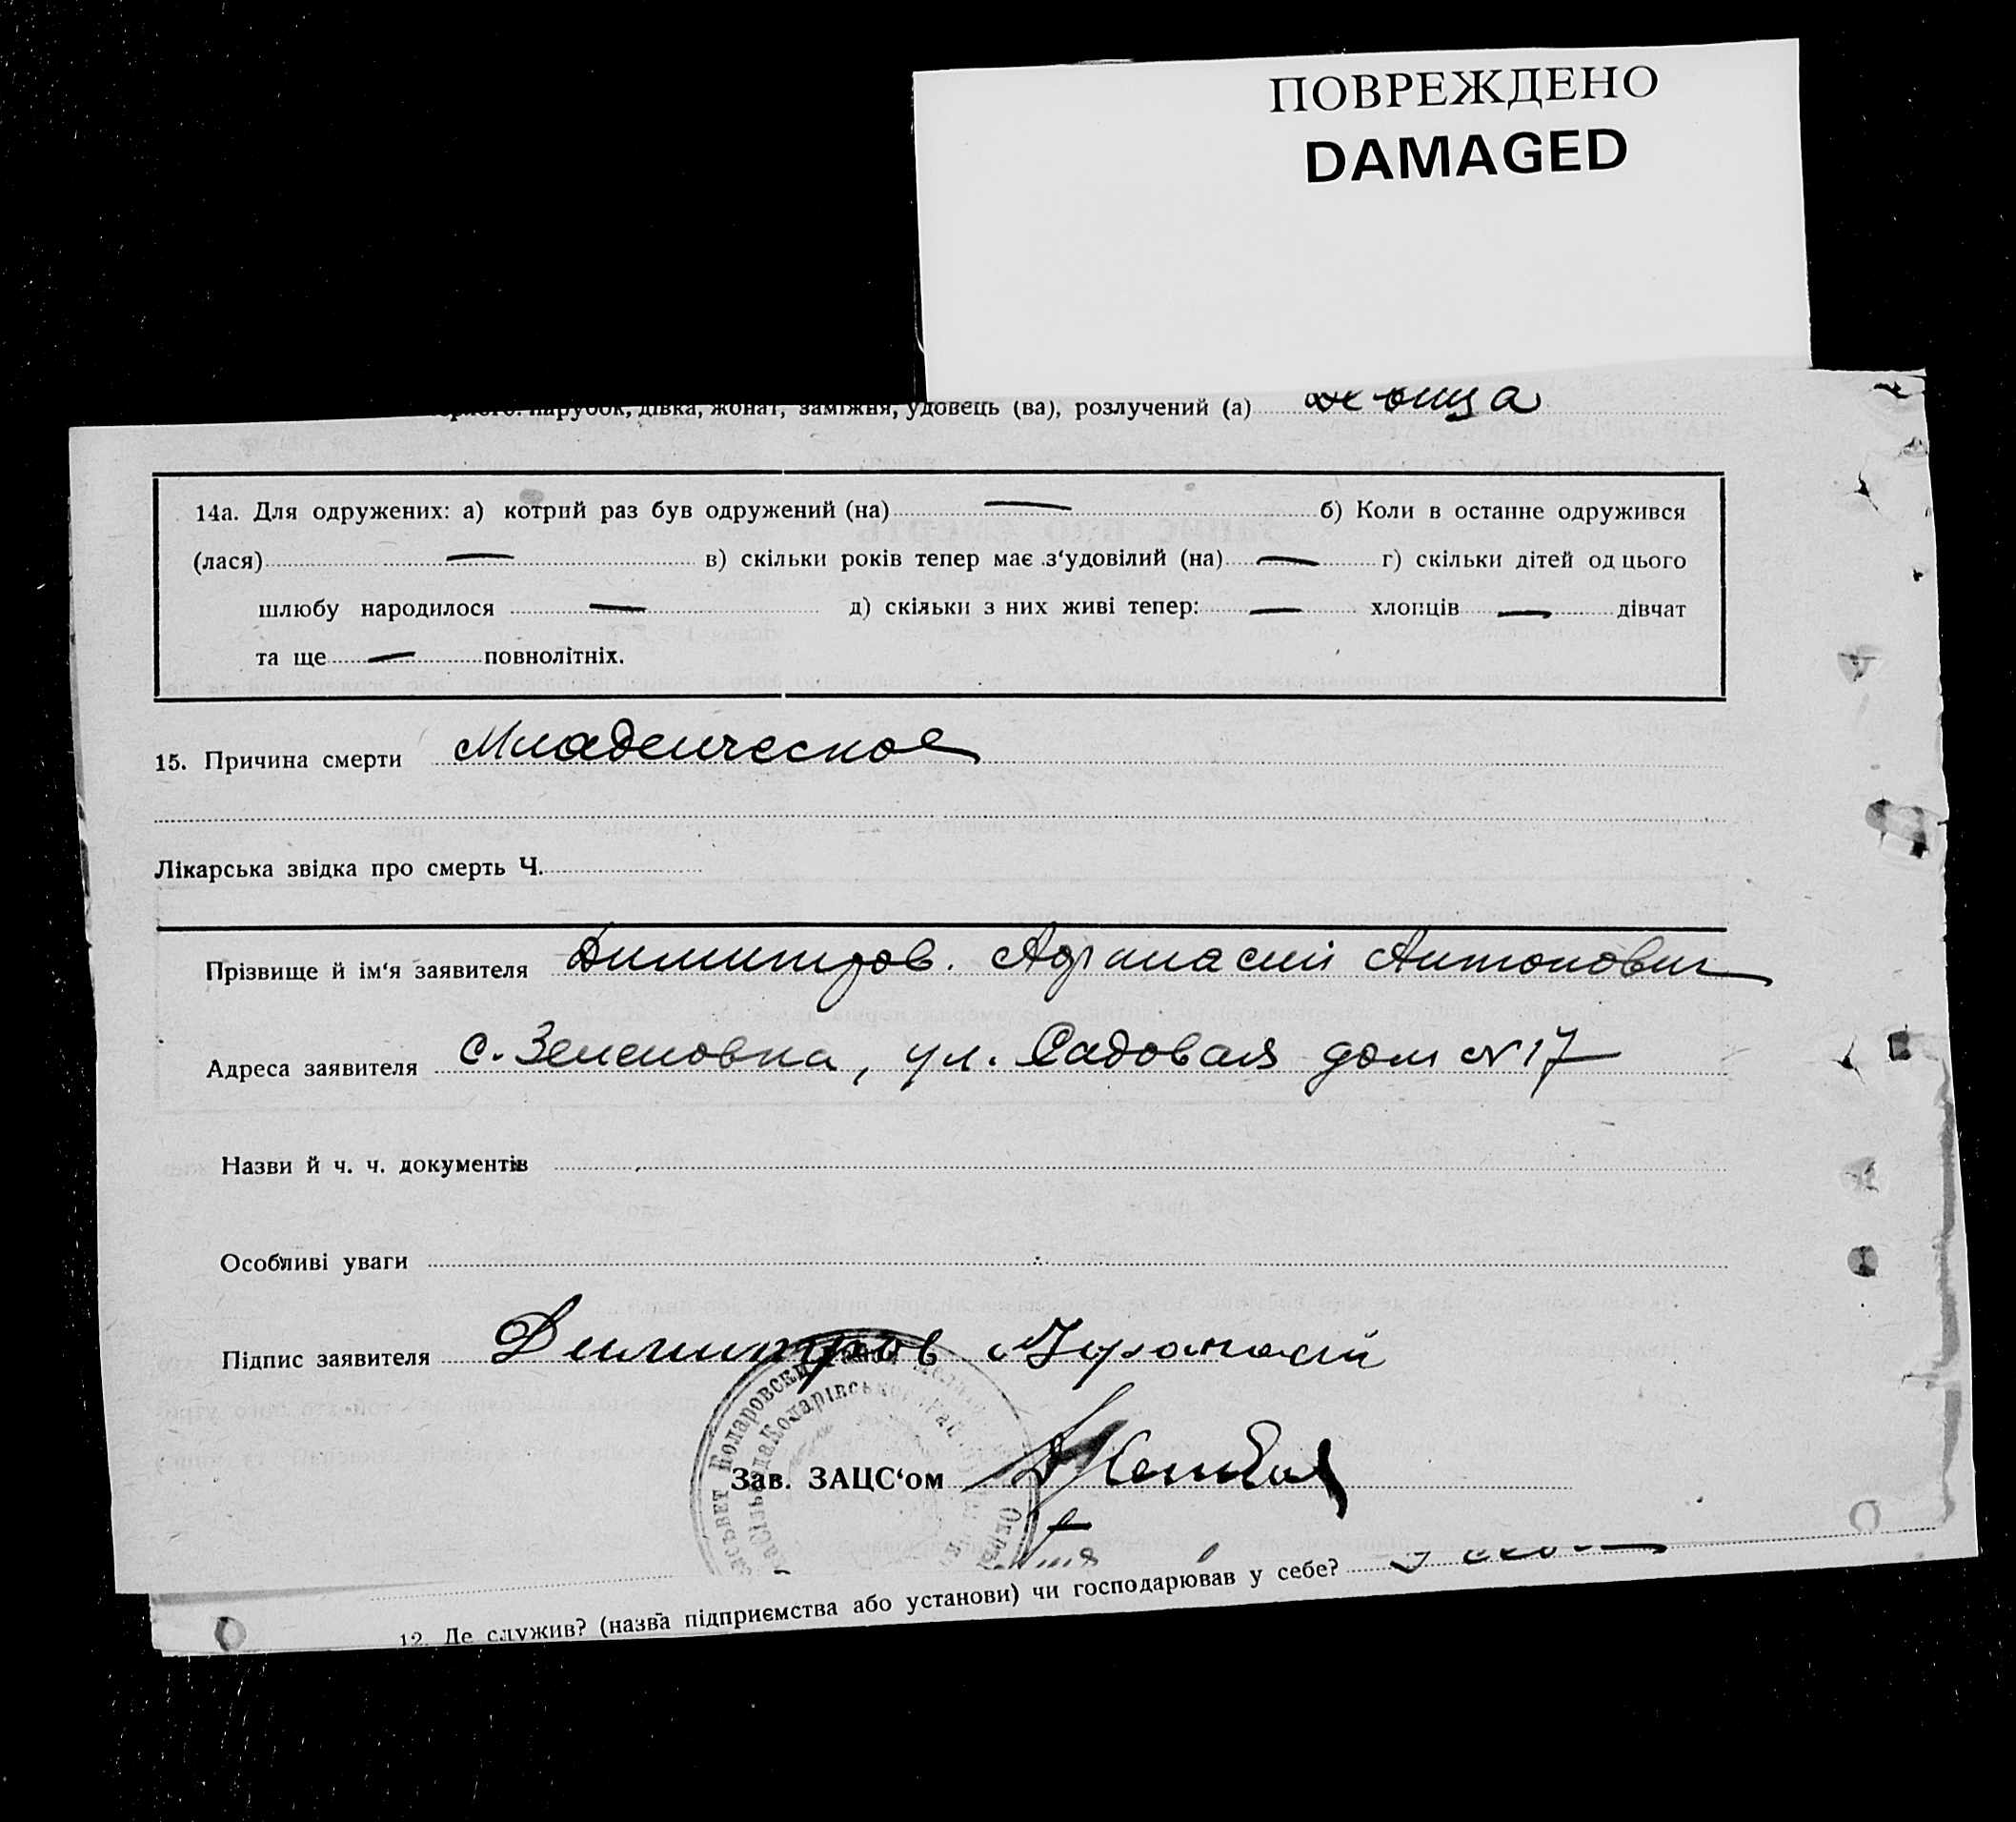 ПОВРЕЖДЕНО
DAMAGED
парубок, дівка, жонат, заміжня, удовець (ва), розлучений (а)
14а. Для одружених: а) котрий раз був одружений (на) — б) Коли в останне одружився
(лася) — в) скільки років тепер має з‘удовілий (на) — г) скільки дітей од цього
шлюбу народилося — д) скільки з них живі тепер: — хлопців — дівчат
та ще — повнолітніх.
15. Причина смерти Младенческое
Лікарська звідка про смерть Ч.
Прізвище й ім‘я заявителя Димитров. Афанасий Антонович
Адреса заявителя с. Зеленовка, ул. Садовая дом №17
Назви й ч. ч. документів
Особливі уваги
Підпис заявителя Димитров Афанасий
Зав. ЗАЦС‘ом
12. Де служив? (назва підприємства або установи) чи господарював у себе?